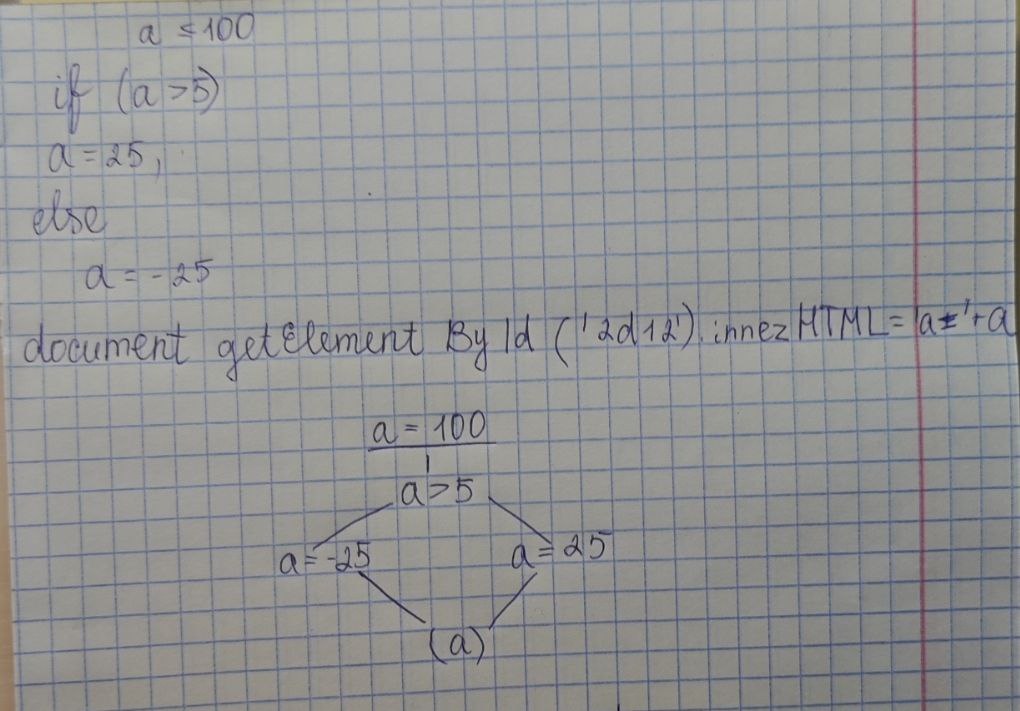 a = 100
if (a > 5)
a = 25,
else
a = - 25
document getElement By Id ('2d12'). innez HTML = 'a=' + a
a = 100
a > 5
a = -25 a = 25
(a)